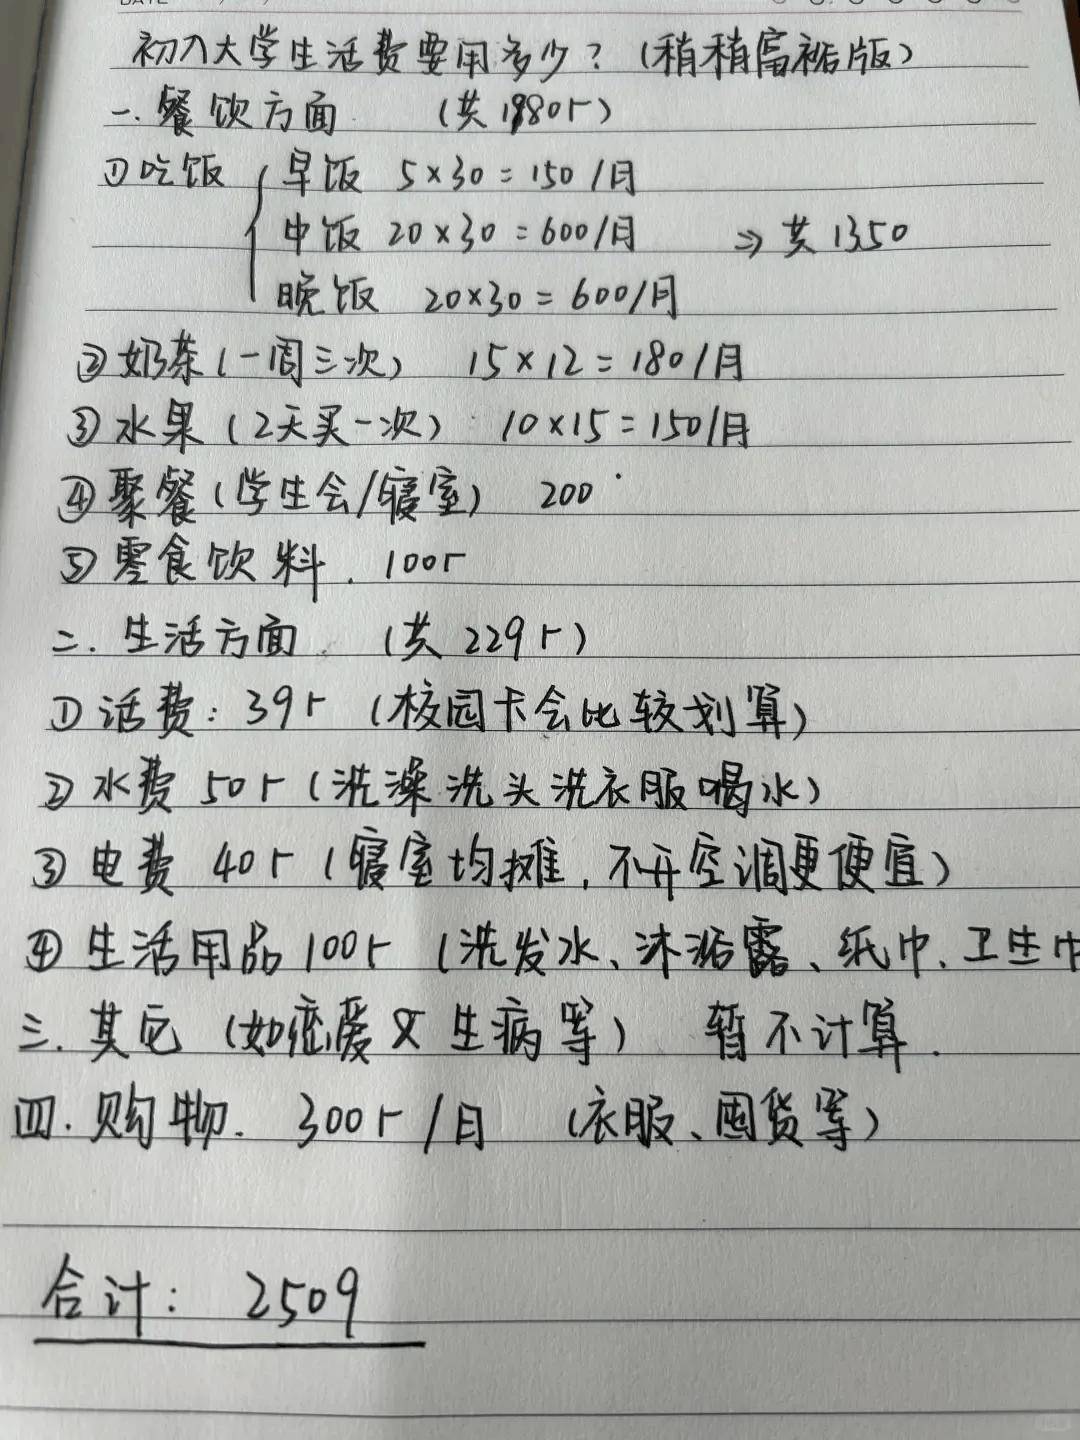 DATE
初入大学生活费要用多少?(稍稍富裕版)
一.餐饮方面 (共1980r)
①吃饭 早饭 5×30=150/月
中饭 20×30=600/月 ⇒共1350
晚饭 20×30=600/月
②奶茶(一周三次) 15×12=180/月
③水果(2天买一次) 10×15=150/月
④聚餐(学生会/寝室) 200
⑤零食饮料. 100r
二.生活方面. (共229r)
①话费:39r (校园卡会比较划算)
②水费50r(洗澡洗头洗衣服喝水)
③电费 40r(寝室均摊,不开空调更便宜)
④生活用品100r (洗发水、沐浴露、纸巾、卫生巾
三.其它 (如恋爱又生病等) 暂不计算.
四.购物. 300r/月 (衣服、囤货等)
合计: 2509